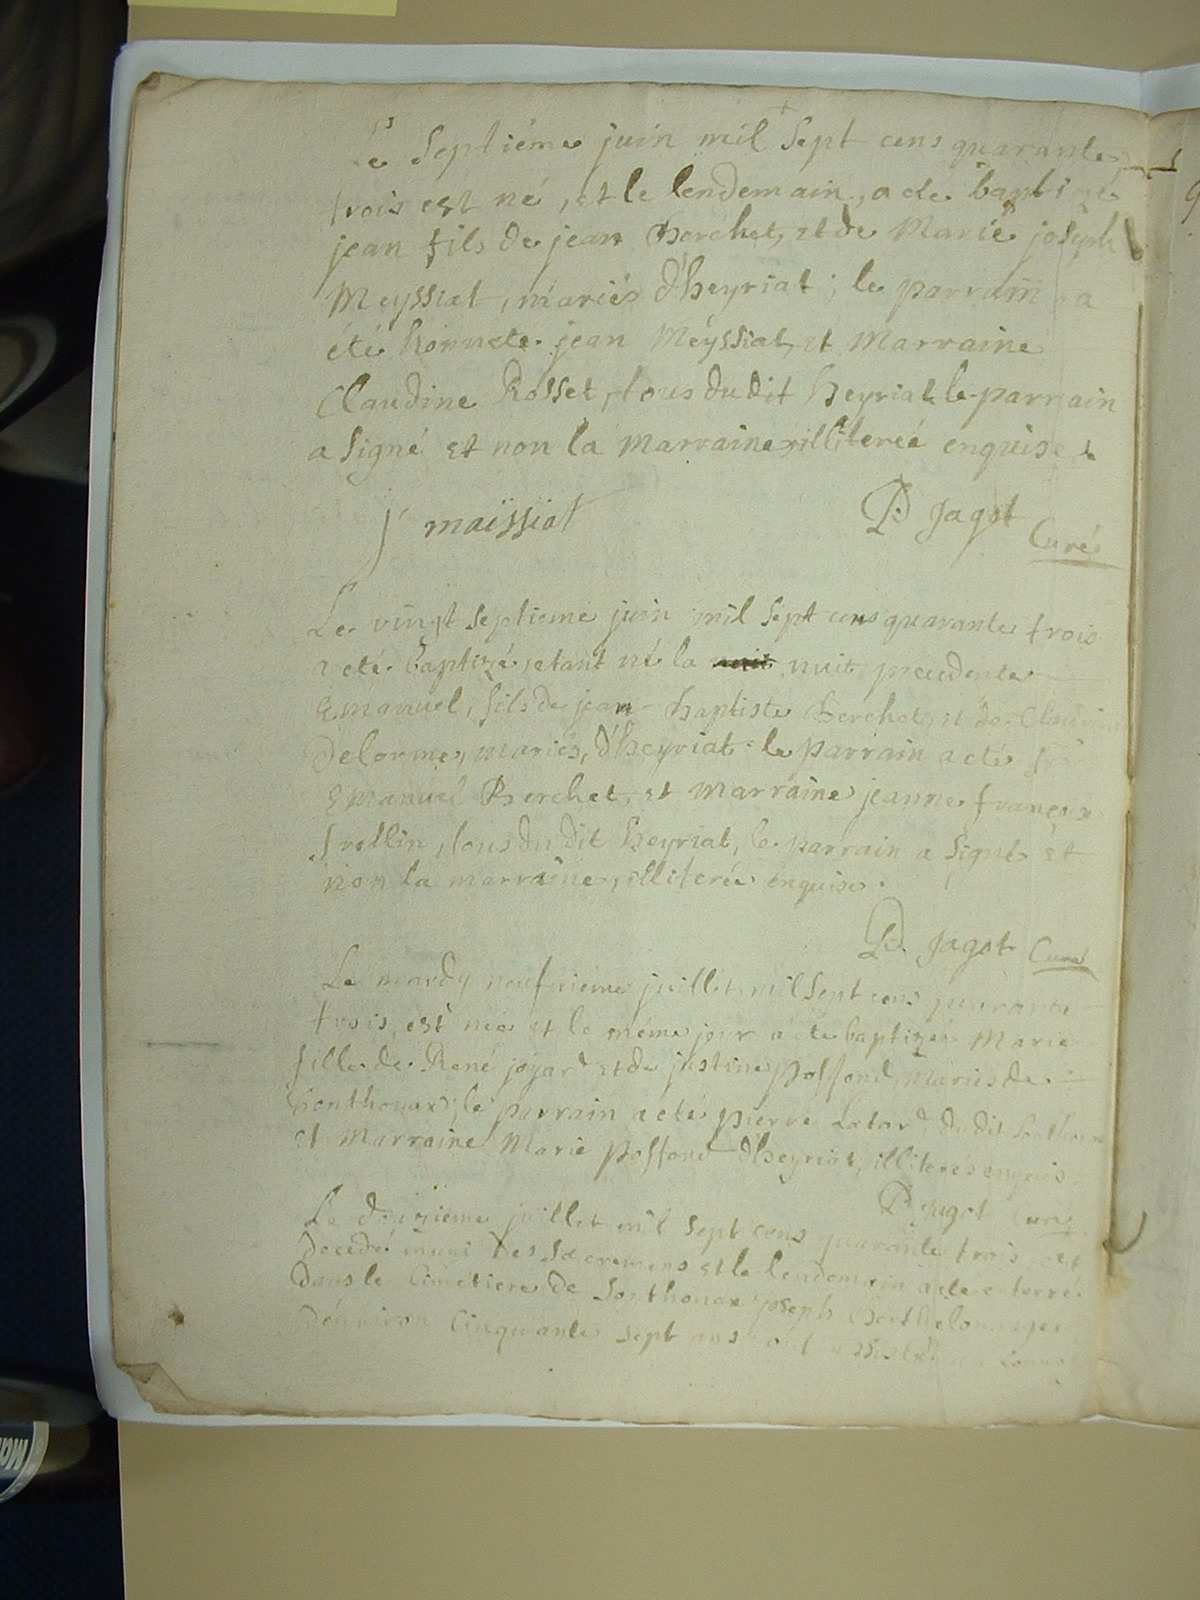 Le Septiéme juin mil Sept cens quarante
trois est né, et le lendemain, a ete baptizé
jean fils de jean Berchet, et de Marie joseph
Meyssiat, mariés d'heyriat; le parrain a
été honnete jean Meyssiat, et Marraine
Claudine Rosset, tous du dit heyriat, le parrain
a Signé et non la Marraine, illiterée enquise
j maïssiat P. Jagot
Curé
Le vingt Septieme juin mil Sept cens quarante trois
a eté baptizé, etant né la nuit precedente
Emanuel, fils de jean baptiste berchet, et de
Delorme, mariés, d'heyriat: le parrain a eté
Emanuel Berchet, et marraine jeanne françoise
, tous du dit heyriat, le parrain a Signé et
non la marraine, illiterée enquise.
P. Jagot Curé
Le mardy neufvieme juillet mil Sept cens quarante
trois, est née et le même jour a ete baptizée Marie
fille de René joyard et de justine, mariés de
Sonthonax; le parrain a eté pierre du dit Sonthonax
et Marraine Marie d'heyriat, illiterés enquis.
P. Jagot Curé
Le juillet mil Sept cens quarante trois, est
decedé muni des Sacremens et le lendemain a ete enterré
dans le Cimetiere de Sonthonax joseph
d'environ Cinquante Sept ans